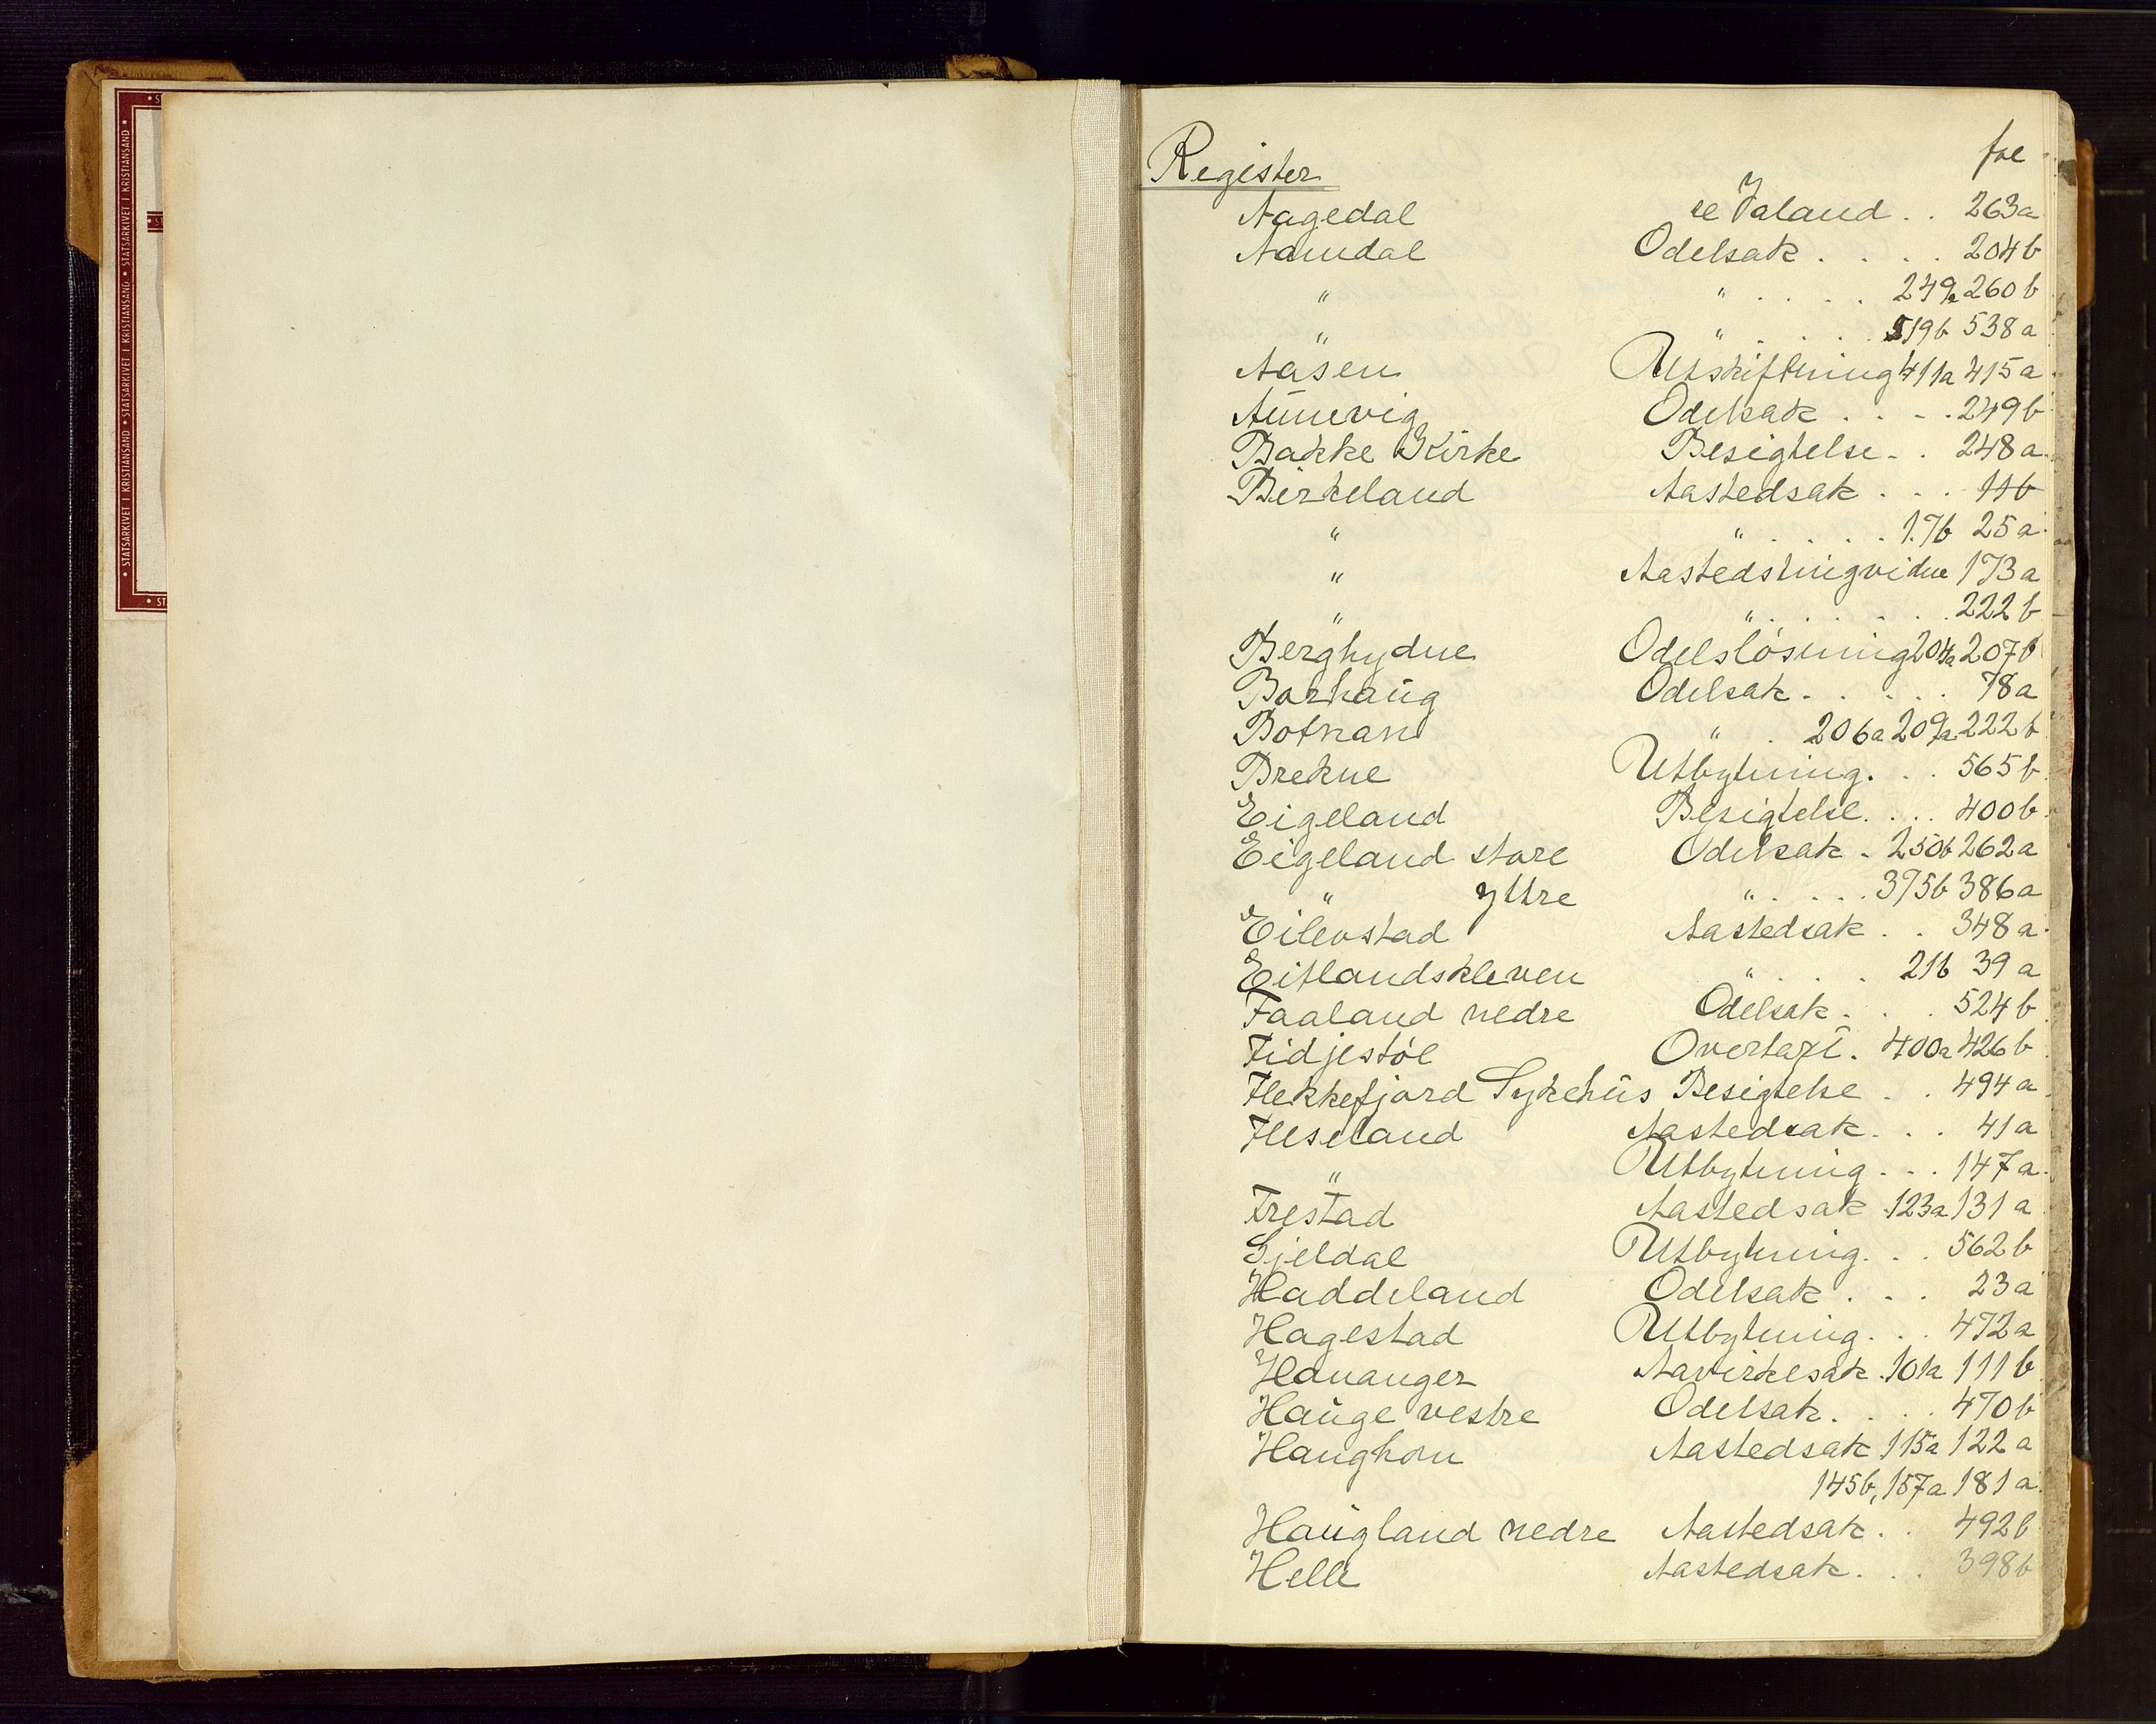 STATSARKIVET I KRISTIANSAND • STATSARKIVET I KRISTIANSAND • STATSARKIVET I KRISTIANSAND
fol
Register
Aagedal se Jaland . . 263a
Aamdal Odelsak . . . . 204b
" " . . . . 249a 260b
" " . . . . 519b 538a
Aasen Utskiftning 411a 415a
Aunevig Odelsak . . . . 249b
Bakke Kirke Besigtelse . . 248a
Birkeland Aastedsak . . . 11b
" " . . . . . 17b 25a
" Aastedstingvidne 173a
" " . . . . . . 222b
Berghydne Odelsløsning 204a 207b
Borhaug Odelsak . . . . . 78a
Botnan " . 206a 209a 222b
Brekne Utbytning . . . 565b
Eigeland Besigtelse . . . . 400b
Eigeland store Odelsak . 250b 262a
" yttre " . . . . . 375b 386a
Eilevstad Aastedsak . . 348a
Eitlandskleven " . . . . 21b 39a
Faaland nedre Odelsak . . . 524b
Fidjestøl Overtaxt . 400a 426b
Flekkefjord Sykehus Besigtelse . . 494a
Fleseland Aastedsak . . . 41a
" Utbytning . . . 147a
Frestad Aastedsak . 123a 131a
Gjeldal Utbytning . . . 562b
Haddeland Odelsak . . . 23a
Hagestad Utbytning . . . 472a
Hananger Aavirkesak . 101a 111b
Hauge vestre Odelsak . . . . 470b
Haughom Aastedsak 115a 122a
145b, 157a 181a
Haugland nedre Aastedsak . . 492b
Helle Aastedsak . . . 398b